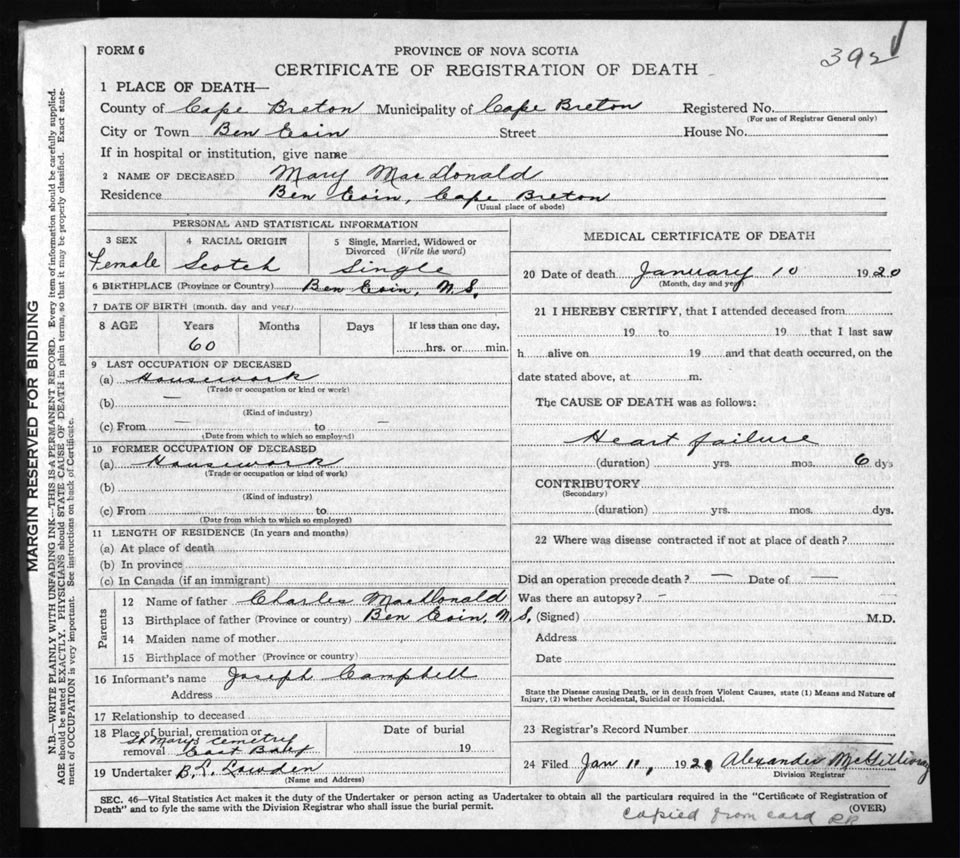 FORM 6
PROVINCE OF NOVA SCOTIA
392
CERTIFICATE OF REGISTRATION OF DEATH
1 PLACE OF DEATH—
County of Cape Breton Municipality of Cape Breton Registered No.
(For use of Registrar General only)
City or Town Ben Eoin Street House No.
If in hospital or institution, give name
2 NAME OF DECEASED Mary MacDonald
Residence Ben Eoin, Cape Breton
(Usual place of abode)
PERSONAL AND STATISTICAL INFORMATION
3 SEX 4 RACIAL ORIGIN 5 Single, Married, Widowed or
Divorced (Write the word)
Female Scotch Single
6 BIRTHPLACE (Province or Country) Ben Eoin, N.S.
7 DATE OF BIRTH (month, day and year)
8 AGE Years Months Days If less than one day,
60 hrs. or min.
9 LAST OCCUPATION OF DECEASED
(a) Housework
(Trade or occupation or kind or work)
(b) —
(Kind of industry)
(c) From — to -
(Date from which to which so employed)
10 FORMER OCCUPATION OF DECEASED
(a) Housework
(Trade or occupation or kind of work)
(b)
(Kind of industry)
(c) From to
(Date from which to which so employed)
11 LENGTH OF RESIDENCE (In years and months)
(a) At place of death
(b) In province
(c) In Canada (if an immigrant)
Parents
12 Name of father Charles MacDonald
13 Birthplace of father (Province or country) Ben Eoin, N.S.
14 Maiden name of mother
15 Birthplace of mother (Province or country)
16 Informant's name Joseph Campbell
Address
17 Relationship to deceased
18 Place of burial, cremation or Date of burial
St Marys Cemetery
removal East Bay 19
19 Undertaker B. E. Lowden
(Name and Address)
MEDICAL CERTIFICATE OF DEATH
20 Date of death January 10 1920
(Month, day and year)
21 I HEREBY CERTIFY, that I attended deceased from
19 to 19 that I last saw
h alive on 19 and that death occurred, on the
date stated above, at m.
The CAUSE OF DEATH was as follows:
Heart failure
(duration) yrs. mos. 6 dys
CONTRIBUTORY
(Secondary)
(duration) yrs. mos. dys.
22 Where was disease contracted if not at place of death?
Did an operation precede death? — Date of —
Was there an autopsy? -
(Signed) M.D.
Address
Date
State the Disease causing Death, or in death from Violent Causes, state (1) Means and Nature of
Injury, (2) whether Accidental, Suicidal or Homicidal.
23 Registrar's Record Number
24 Filed Jan 11, 1920 Alexander McGillivray
Division Registrar
SEC. 46—Vital Statistics Act makes it the duty of the Undertaker or person acting as Undertaker to obtain all the particulars required in the "Certificate of Registration of
Death" and to fyle the same with the Division Registrar who shall issue the burial permit. (OVER)
Copied from card RR
MARGIN RESERVED FOR BINDING
N.B.—WRITE PLAINLY WITH UNFADING INK—THIS IS A PERMANENT RECORD. Every item of information should be carefully supplied.
AGE should be stated EXACTLY. PHYSICIANS should STATE CAUSE OF DEATH in plain terms, so that it may be properly classified. Exact state-
ment of OCCUPATION is very important. See instructions on back of Certificate.